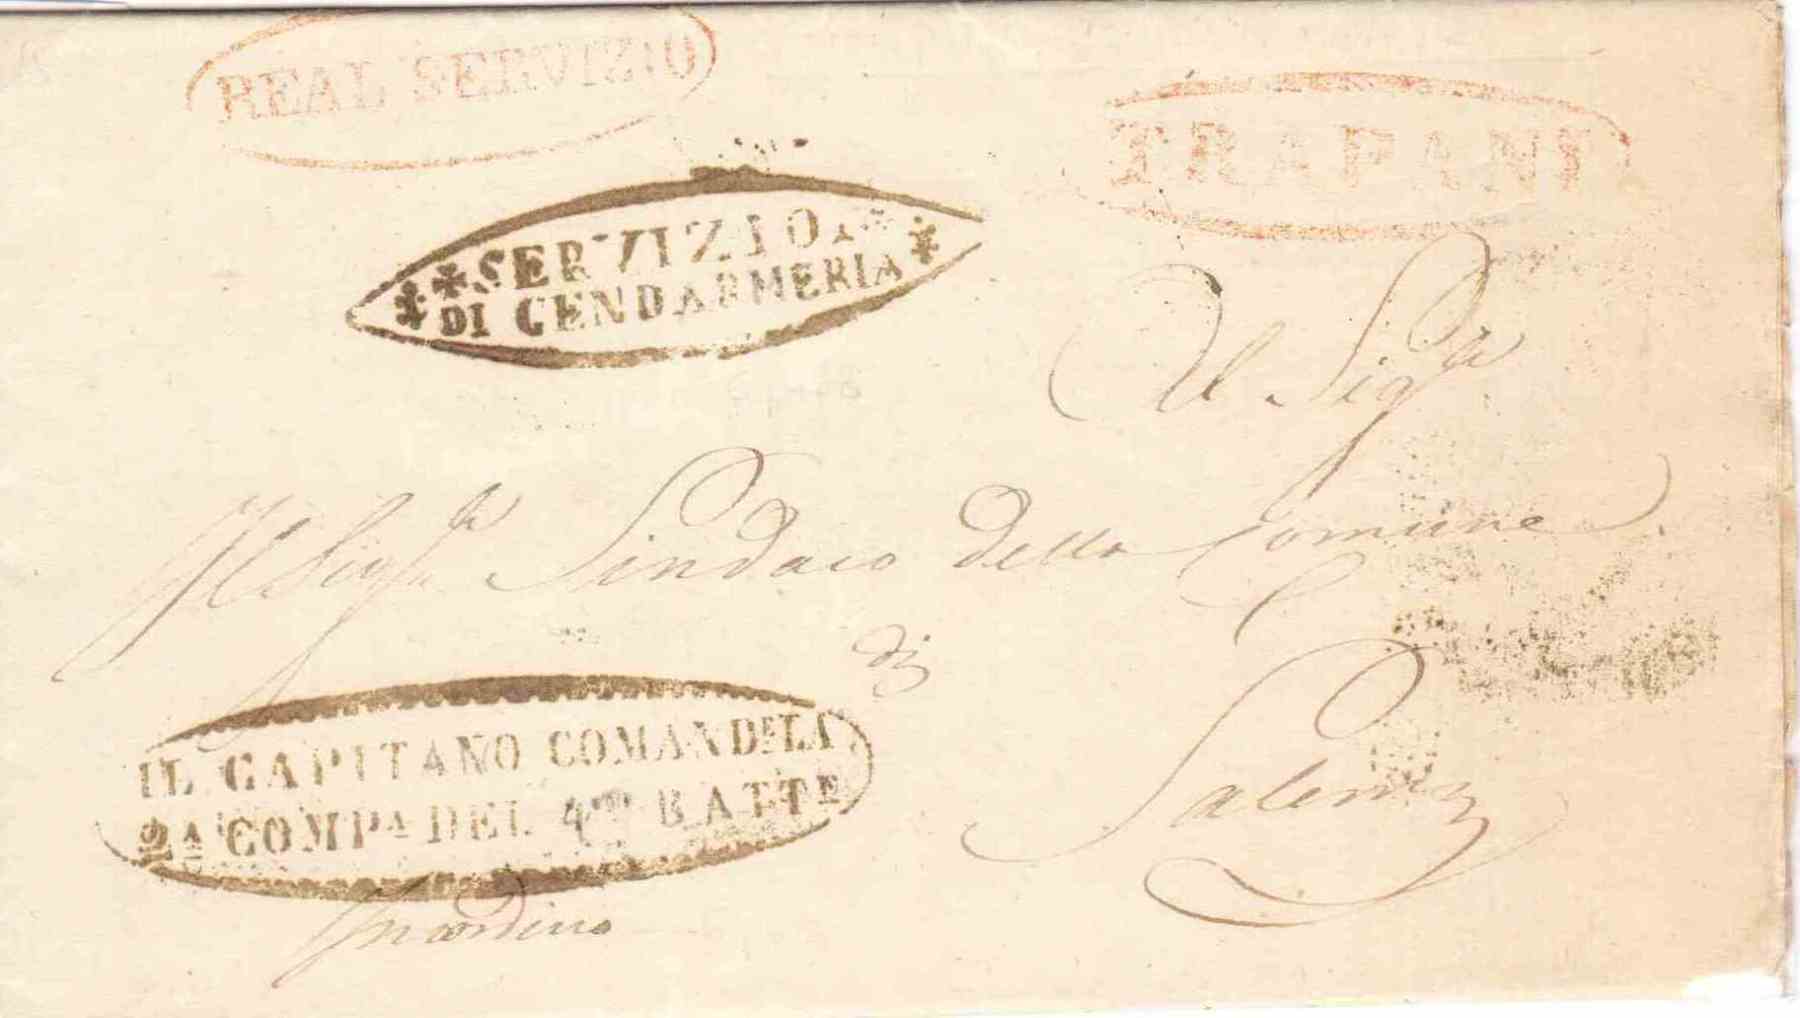 REAL SERVIZIO
TRAPANI
SERVIZIO
DI GENDARMERIA
Al Sigre
Il Sigre Sindaco della Comune
di
Salemi
IL CAPITANO COMANDte LA
2A COMPA DEL 4to BATTNE